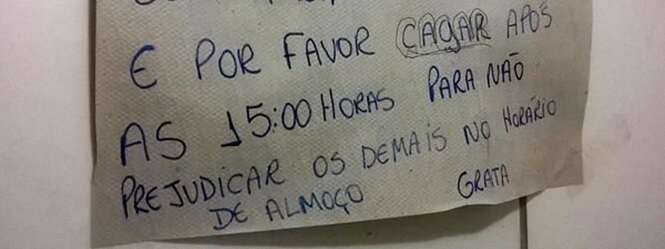 E POR FAVOR CAGAR APÓS
AS 15:00 HORAS PARA NÃO
PREJUDICAR OS DEMAIS NO HORÁRIO
DE ALMOÇO GRATA